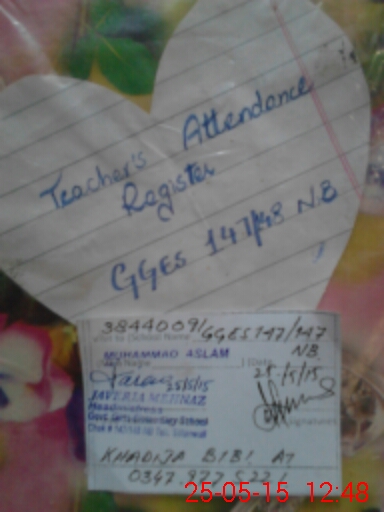 Teacher's Attendance
Register
GGES 147/48 N.B
3844009/GGES147/147
NB
MUHAMMAD ASLAM
25/5/15
25/5/15
JAVERIA MEHNAZ
Headmistress
Govt. Girls Elementary School
KHADIJA BIBI AT
0347 877 5221
25-05-15 12:48